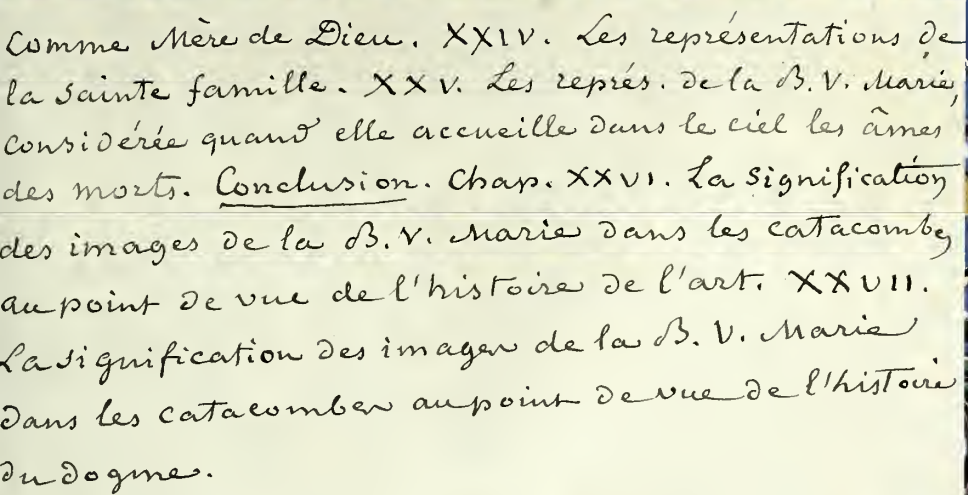 Comme Mère de Dieu. XXIV. Les représentations de
la sainte famille. XXV. Les représ. de la B. V. Marie,
considérée quand elle accueille dans le ciel les âmes
des morts. Conclusion. Chap. XXVI. La signification
des images de la B. V. Marie dans les catacombes
au point de vue de l'histoire de l'art. XXVII.
La signification des images de la B. V. Marie
dans les catacombes au point de vue de l'histoire
du dogme.